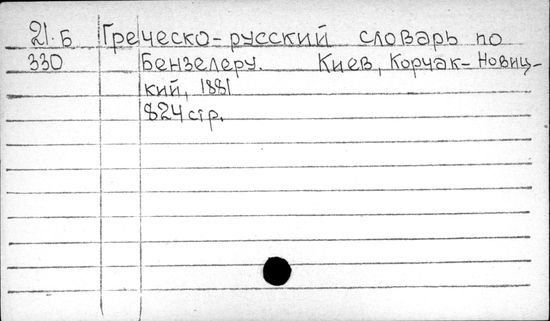 21.Б Греческо-русский словарь по
330 Бензелеру. Киев, Корчак-Новиц-
кий, 1881
824 стр.